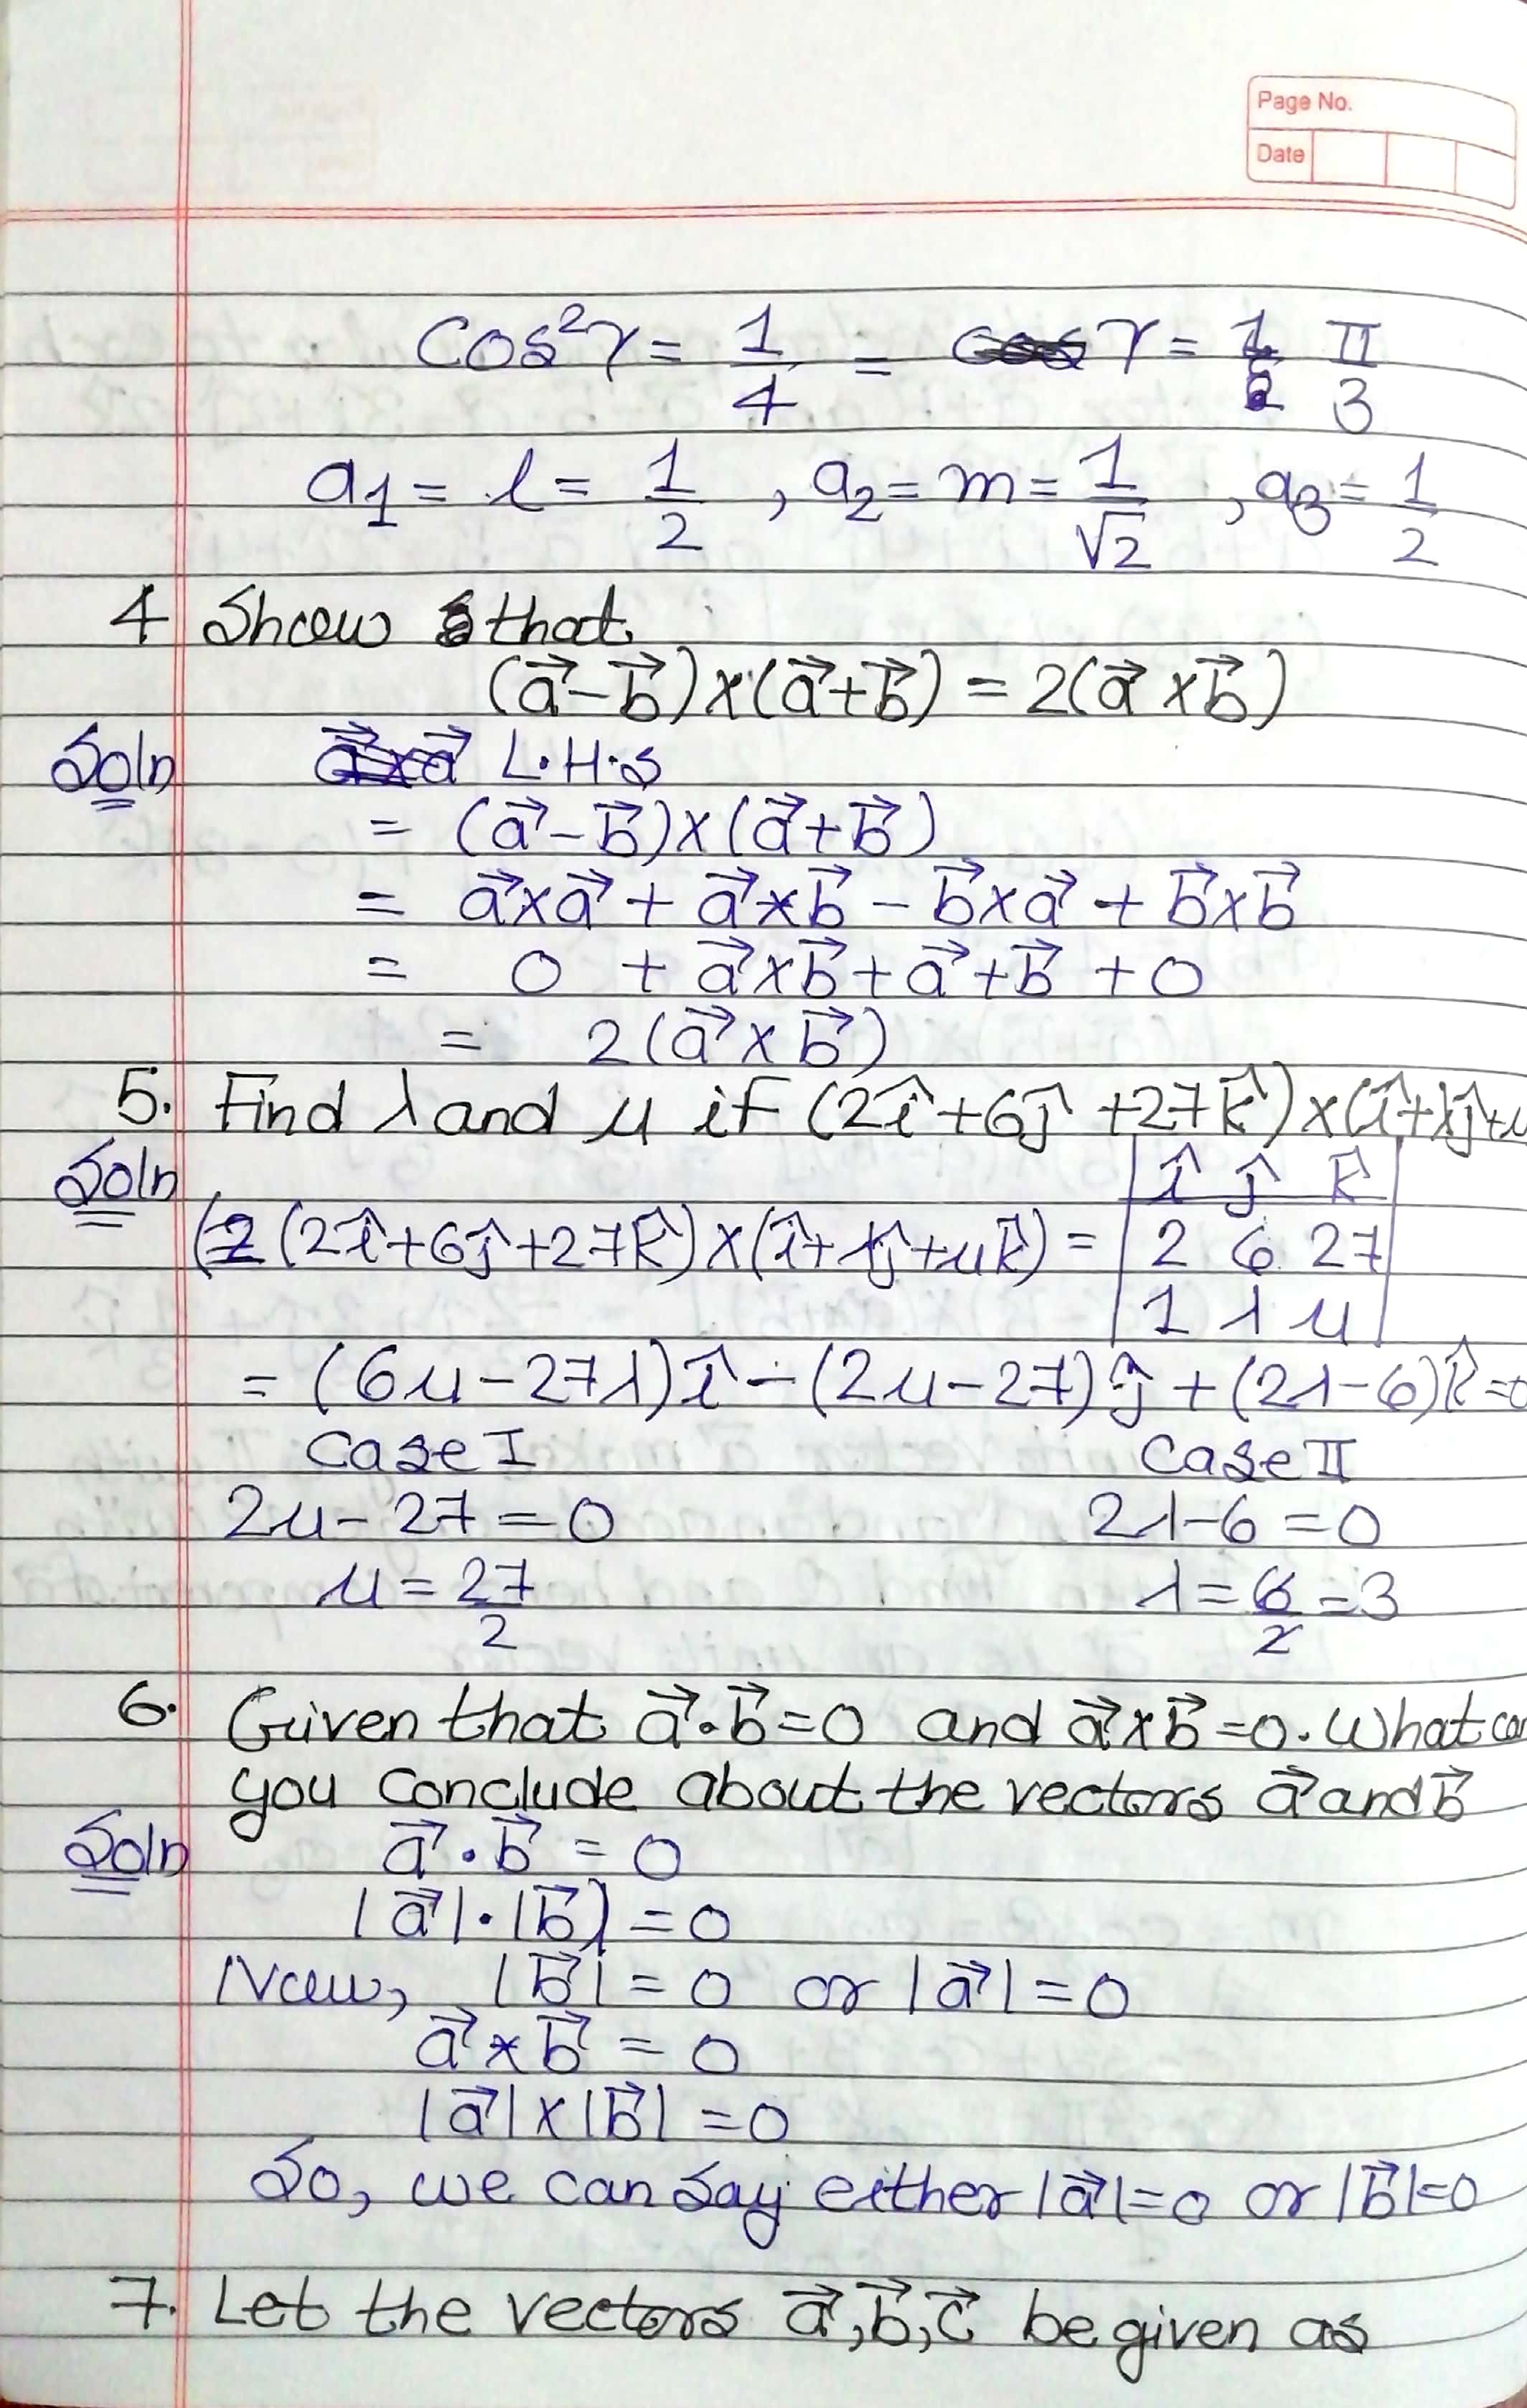 Page No.
Date
Cos²γ = 1/4 = γ = π/3
a₁ = l = 1/2 , a₂ = m = 1/√2 , a₃ = 1/2
4 Show that
(a⃗ - b⃗) × (a⃗ + b⃗) = 2(a⃗ × b⃗)
Soln L.H.S
= (a⃗ - b⃗) × (a⃗ + b⃗)
= a⃗ × a⃗ + a⃗ × b⃗ - b⃗ × a⃗ + b⃗ × b⃗
= 0 + a⃗ × b⃗ + a⃗ + b⃗ + 0
= 2(a⃗ × b⃗)
5. Find λ and μ if (2î + 6ĵ + 27k̂) × (î + λĵ + μ
Soln
(2 (2î + 6ĵ + 27k̂) × (î + λĵ + μk̂) = | î ĵ k̂ |
| 2 6 27 |
| 1 λ μ |
= (6μ - 27λ)î - (2μ - 27)ĵ + (2λ - 6)k̂ = 0
Case I Case II
2μ - 27 = 0 2λ - 6 = 0
μ = 27/2 λ = 6/2 = 3
6. Given that a⃗ . b⃗ = 0 and a⃗ × b⃗ = 0. What can
you conclude about the vectors a⃗ and b⃗
Soln a⃗ . b⃗ = 0
|a⃗| . |b⃗| = 0
Now, |b⃗| = 0 or |a⃗| = 0
a⃗ × b⃗ = 0
|a⃗| × |b⃗| = 0
So, we can say either |a⃗| = 0 or |b⃗| = 0
7. Let the vectors a⃗, b⃗, c⃗ be given as